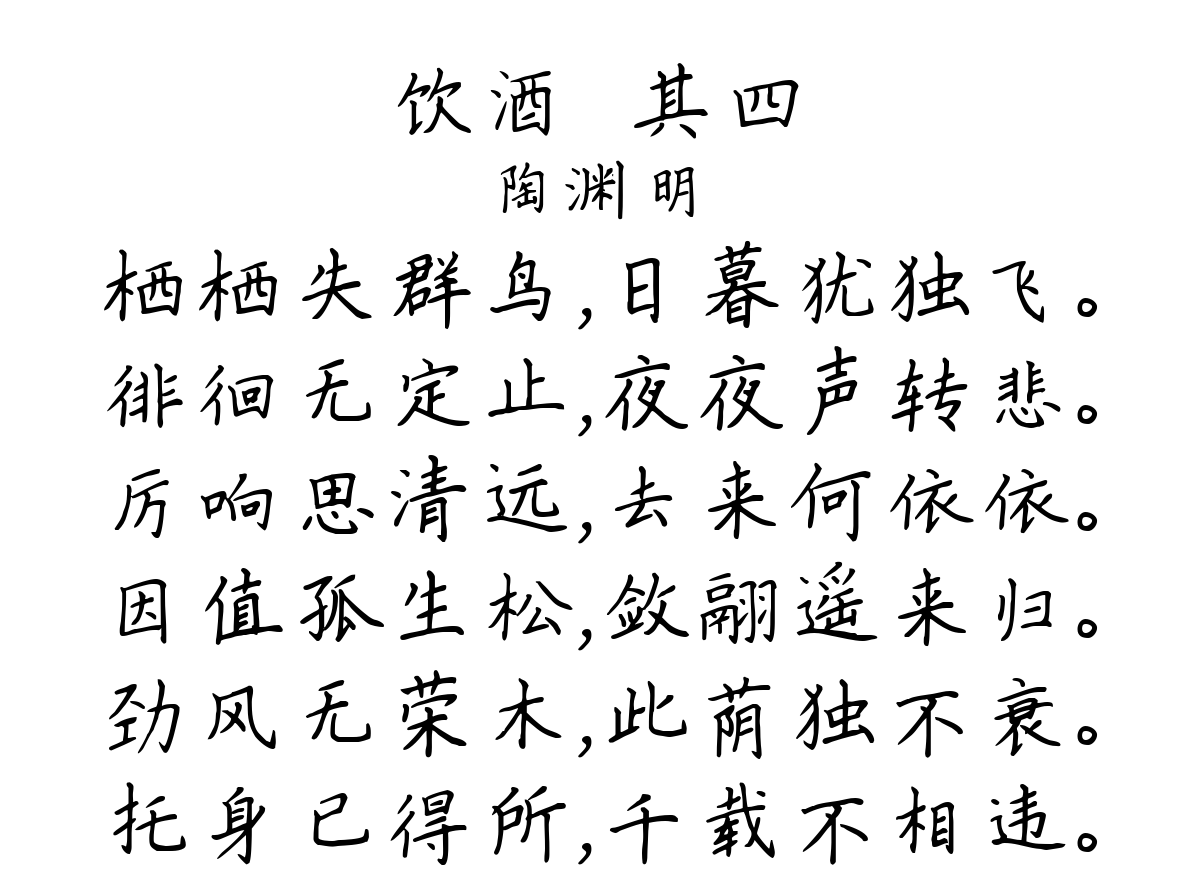 饮酒 其四
陶渊明
栖栖失群鸟,日暮犹独飞。
徘徊无定止,夜夜声转悲。
厉响思清远,去来何依依。
因值孤生松,敛翮遥来归。
劲风无荣木,此荫独不衰。
托身已得所,千载不相违。